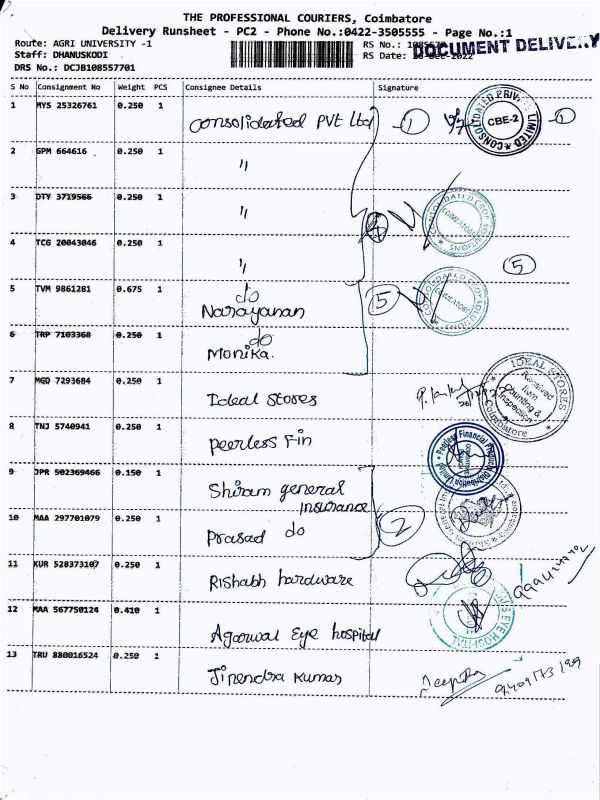 THE PROFESSIONAL COURIERS, Coimbatore
Delivery Runsheet - PC2 - Phone No.:0422-3505555 - Page No.:1
Route: AGRI UNIVERSITY -1
Staff: DHANUSKODI
DRS No.: DCJB108557701
RS No.:
RS Date: 2022
DOCUMENT DELIVERY
S No Consignment No Weight PCS Consignee Details Signature
1 MYS 25326761 0.250 1 Consolidated Pvt Ltd 1 1
CONSOLIDATED PRIVATE LIMITED
CBE-2
2 GPM 664616 0.250 1 "
3 DTY 3719566 0.250 1 "
4 TCG 20043046 0.250 1 " 5
5 TVM 9861281 0.675 1 do
Narayanan 5
6 TRP 7103368 0.250 1 do
Monika.
7 MGD 7293684 0.250 1 Ideal Stores
IDEAL STORES
Received
Item
Counting &
Inspection
Coimbatore
8 TNJ 5740941 0.250 1 Peerless Fin
Peerless Financial Products Distribution Limited
9 JPR 502369466 0.150 1 Shriram general
Insurance
10 MAA 297701079 0.250 1 Prasad do 2
11 KUR 528373107 0.250 1 Rishabh hardware
12 MAA 567750124 0.410 1 Agarwal Eye hospital
EYE HOSPITAL
13 TRU 880016524 0.250 1 Jinendra Kumar